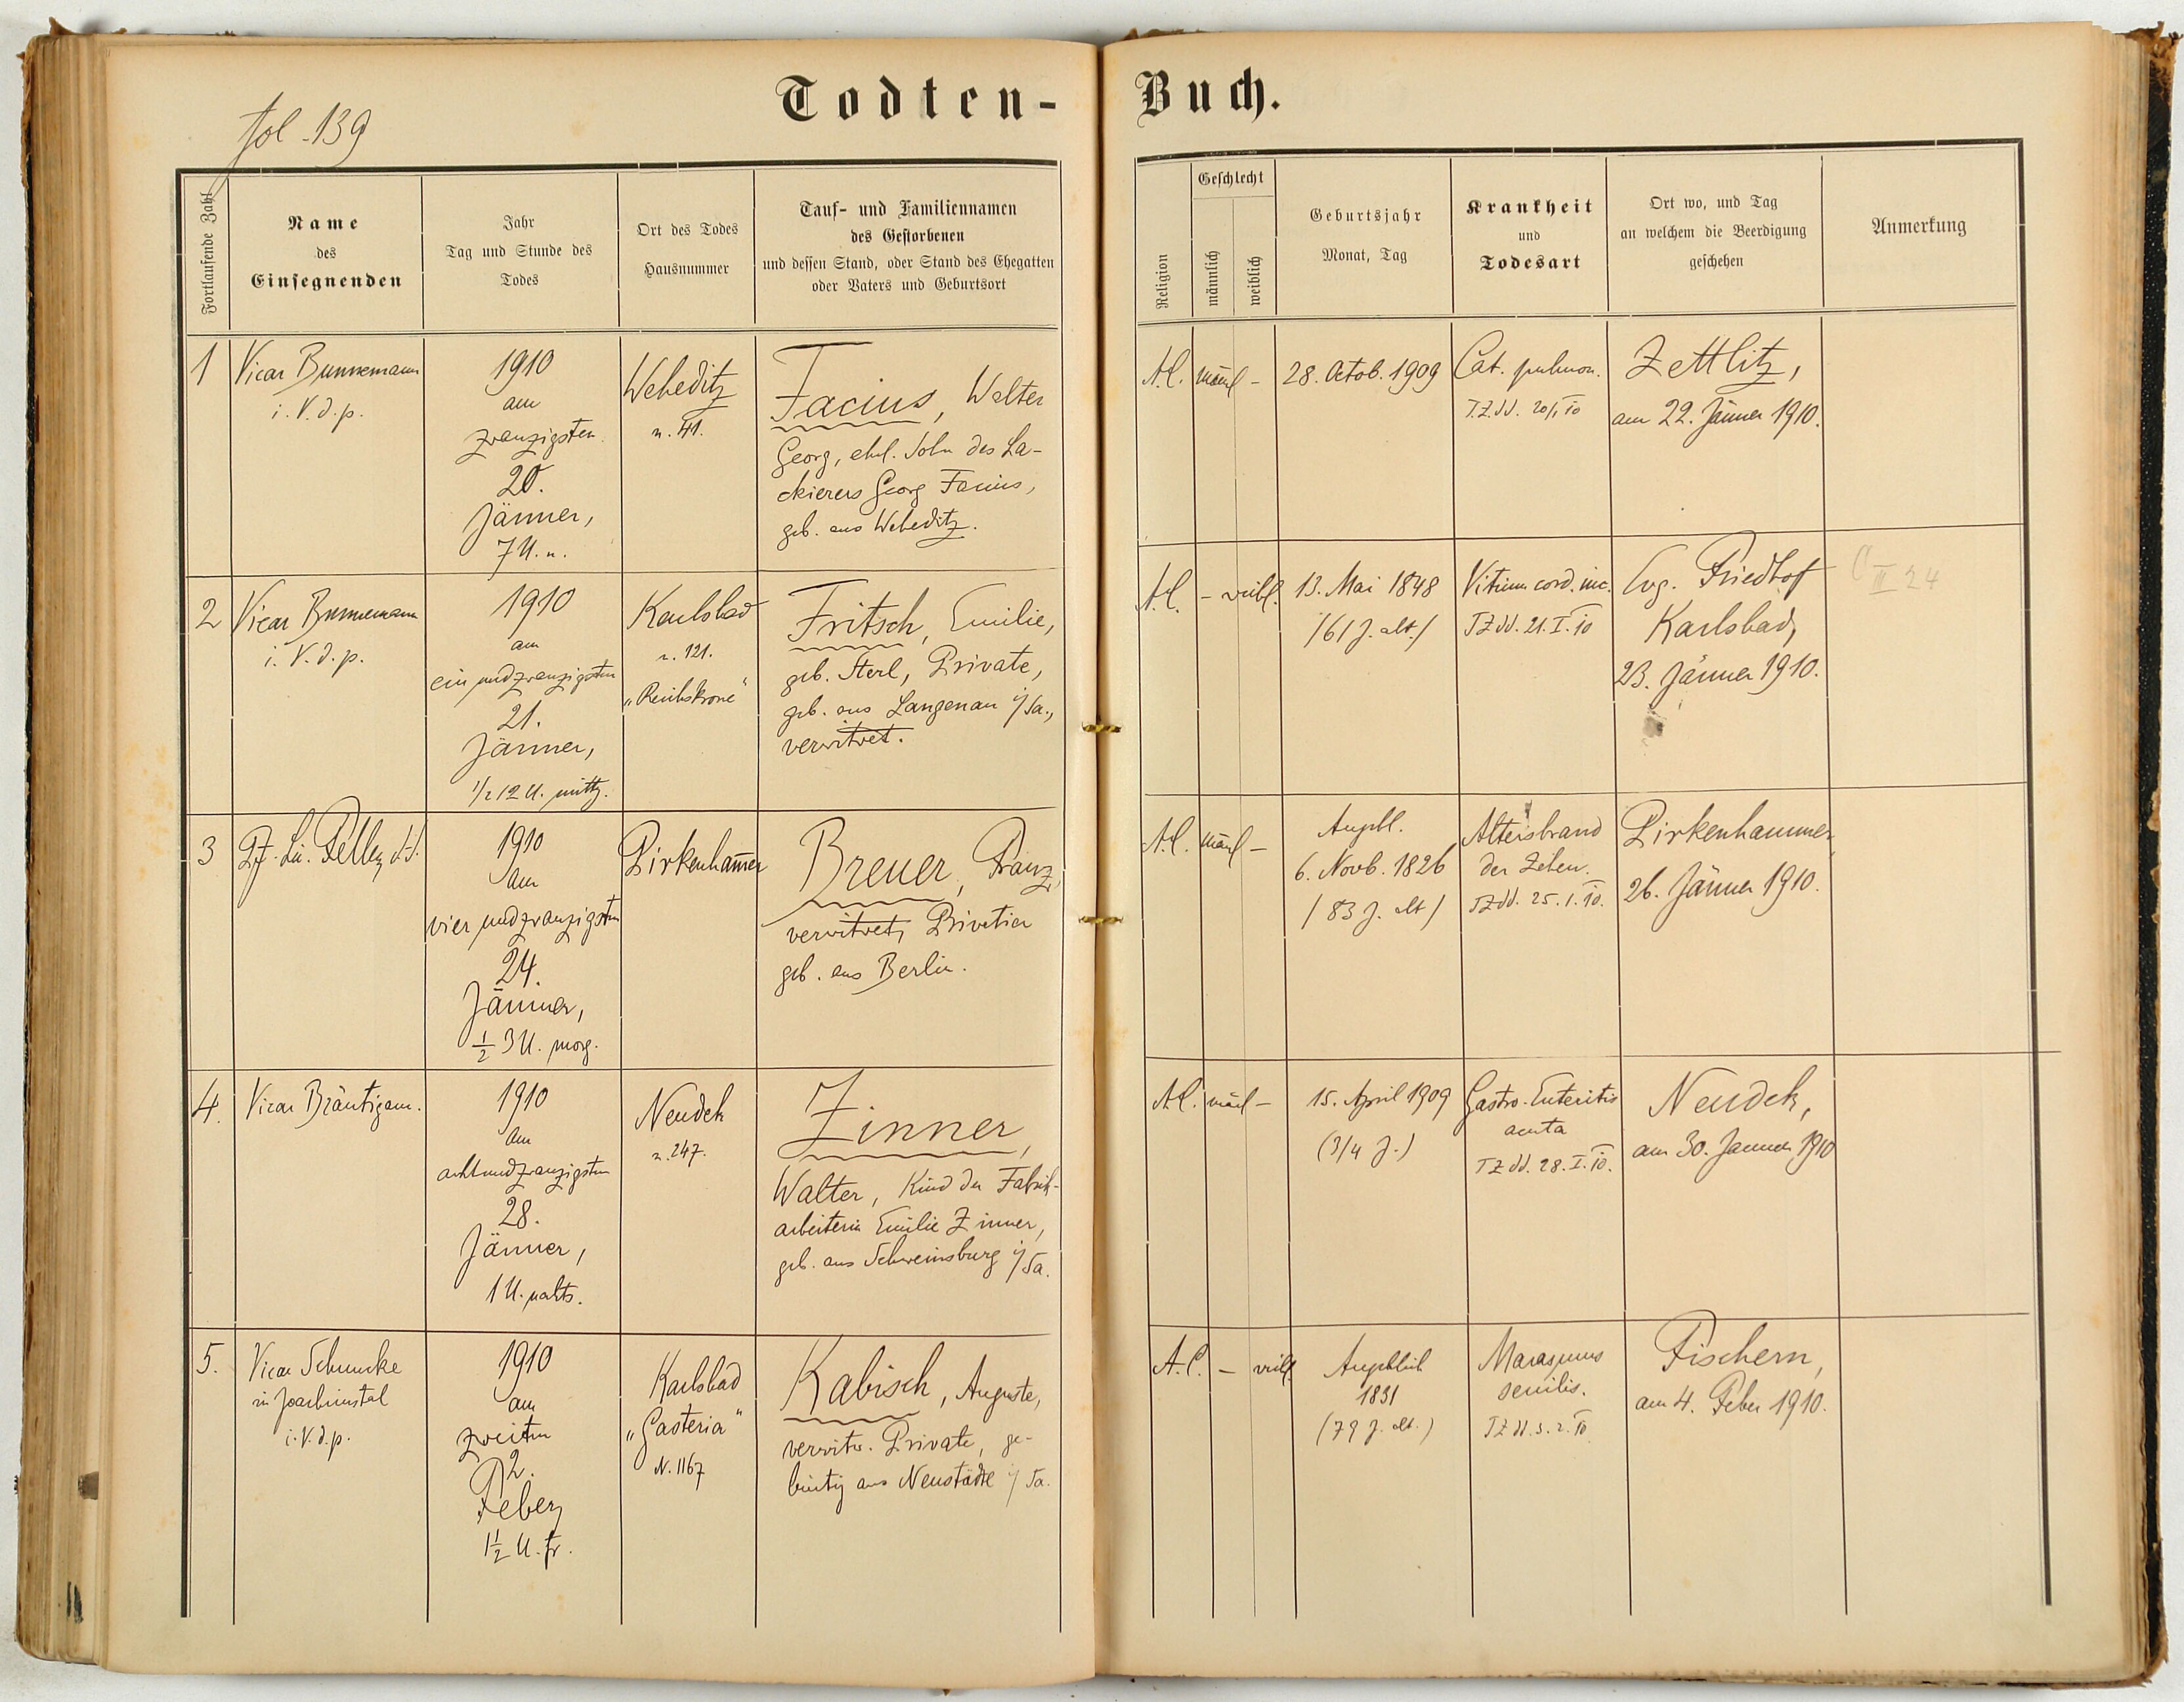 fol. 139
Todten-Buch.
Fortlaufende Zahl
Name
des
Einsegnenden
Jahr
Tag und Stunde des
Todes
Ort des Todes
Hausnummer
Tauf- und Familiennamen
des Gestorbenen
und dessen Stand, oder Stand des Ehegatten
oder Vaters und Geburtsort
Religion
Geschlecht
männlich
weiblich
Geburtsjahr
Monat, Tag
Krankheit
und
Todesart
Ort wo, und Tag
an welchem die Beerdigung
geschehen
Anmerkung
1
Vicar Bunnemann
i. V. d. p.
1910
am
zwanzigsten
20.
Jänner,
7 U. n.
Weheditz
n. 41.
Facius, Walter
Georg, ehel. Sohn des La-
ckierers Georg Facius,
geb. aus Weheditz.
A.C.
männl
–
28. Octob. 1909
Cat. pulmon.
T.Z. dd. 20/I 10
Zettlitz,
am 22. Jänner 1910.
2
Vicar Bunnemann
i. V. d. p.
1910
am
einundzwanzigsten
21.
Jänner,
1/2 12 U. mittg.
Karlsbad
n. 121.
„Reichskrone"
Fritsch, Emilie,
geb. Sterl, Private,
geb. aus Langenau i/Sa.,
verwitwet.
A.C.
–
weibl.
13. Mai 1848
/61 J. alt./
Vitium cord. inc.
TZ dd. 21. I. 10
Evg. Friedhof
Karlsbad,
23. Jänner 1910.
C III 24
3
1910
am
vierundzwanzigsten
24.
Jänner,
1/2 3 U. morg.
Pirkenham̅er
Breuer, Franz,
verwitwet, Privatier
geb. aus Berlin.
A.C.
männl
–
Angebl.
6. Novb. 1826
/83 J. alt/
Altersbrand
der Zehen.
TZ dd. 25. 1. 10.
Pirkenhammer,
26. Jänner 1910.
4.
Vicar Bräutigam.
1910
am
achtundzwanzigsten
28.
Jänner,
1 U. nachts.
Neudek
n. 247.
Zinner,
Walter, Kind der Fabrik-
arbeiterin Emilie Zinner,
geb. aus Schweinsburg i/Sa.
A.C.
männl
–
15. April 1909
(3/4 J.)
Gastro-Enteritis
acuta
TZ dd. 28. I. 10.
Neudek,
am 30. Januar 1910
5.
Vicar Schmucke
in Joachimstal
i. V. d. p.
1910
am
zweiten
2.
Feber,
1 1/2 U. fr.
Karlsbad
„Gasteria"
N. 1167
Kabisch, Auguste,
verwitw. Private, ge-
bürtig aus Neustädtel i/Sa.
A.C.
–
weibl.
Angeblich
1831
(79 J. alt.)
Marasmus
senilis.
TZ dd. 3. 2. 10
Fischern,
am 4. Feber 1910.